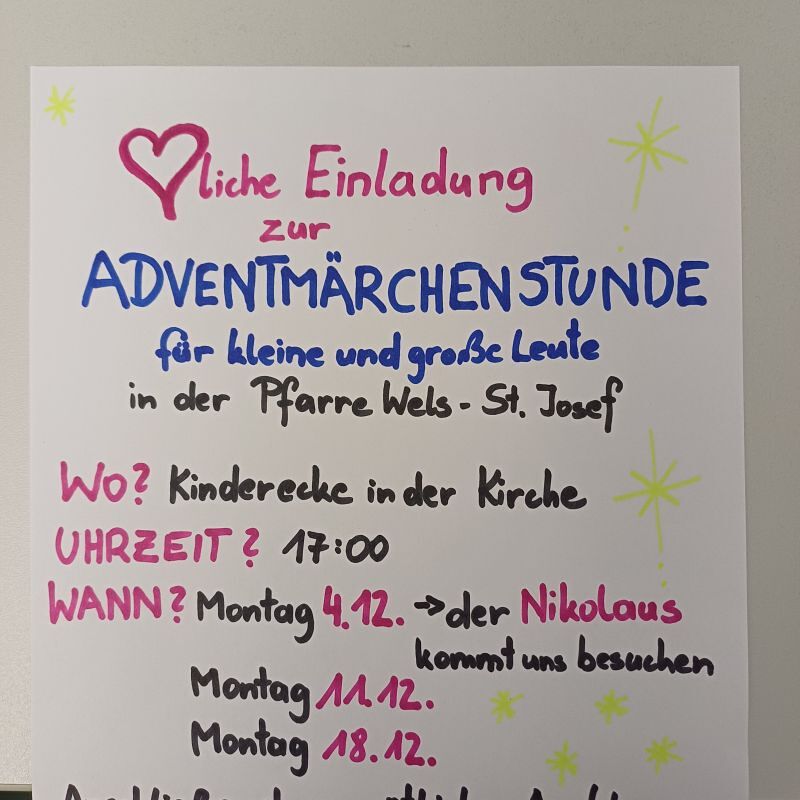 ♥liche Einladung
zur
ADVENTMÄRCHENSTUNDE
für kleine und große Leute
in der Pfarre Wels - St. Josef
WO? Kinderecke in der Kirche
UHRZEIT? 17:00
WANN? Montag 4.12. → der Nikolaus
kommt uns besuchen
Montag 11.12.
Montag 18.12.